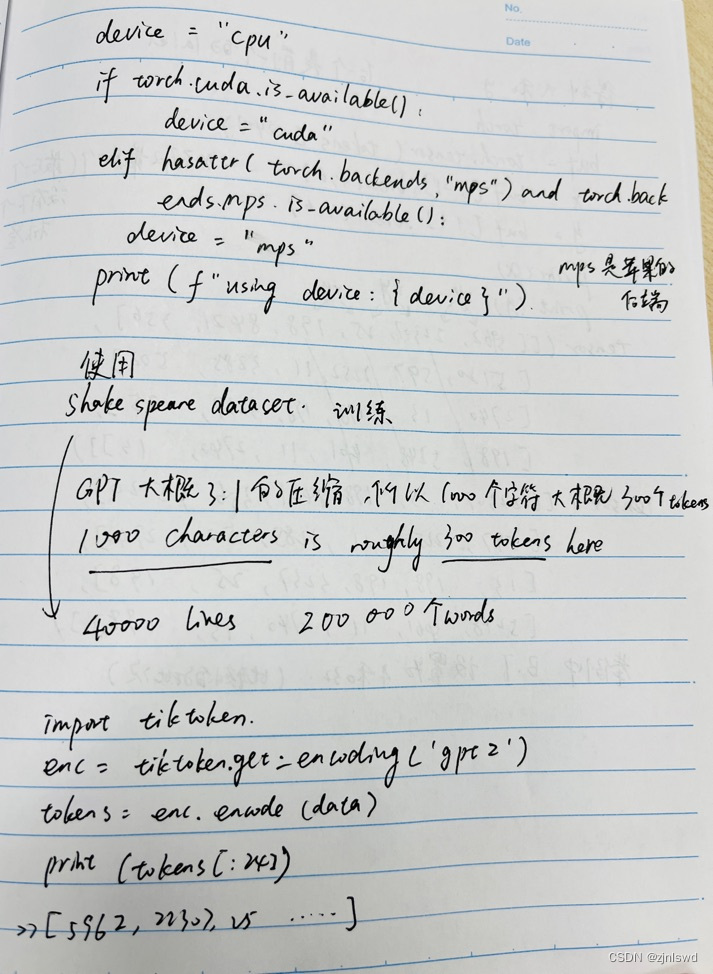 No.
Date
device = "cpu"
if torch.cuda.is_available():
device = "cuda"
elif hasattr( torch.backends, "mps") and torch.back
ends.mps.is_available():
device = "mps"
print (f"using device: {device}").
mps是苹果的
后端
使用
Shake speare dataset. 训练
GPT 大概3:1的压缩,所以1000个字符大概300个tokens
1000 characters is roughly 300 tokens here
40000 lines 200000个words
import tiktoken.
enc = tiktoken.get_encoding('gpt2')
tokens = enc.encode (data)
print (tokens[:24])
>>[5962, 22307, 25 .....]
CSDN @zjnlswd